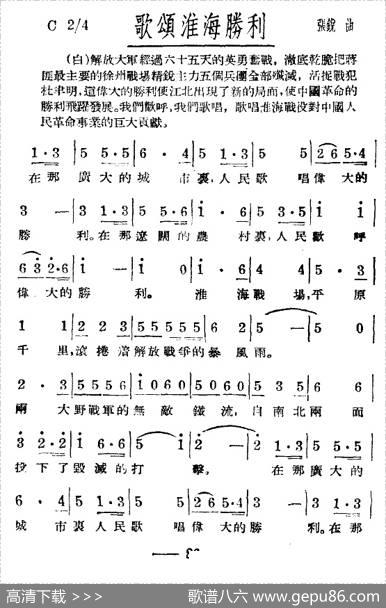 C 2/4
歌頌淮海勝利
張銳 曲
(白)解放大軍經過六十五天的英勇奮戰，澈底乾脆把蔣
匪最主要的徐州戰場精銳主力五個兵團全部殲滅，活捉戰犯
杜聿明，這偉大的勝利使江北出現了新的局面，使中國革命的
勝利飛躍發展。我們歡呼，我們歌唱，歌唱淮海戰役對中國人
民革命事業的巨大貢獻。
1·3 5 5·5 6·4 5 1·3 5 5 2 6 5·4
在那 廣大的城 市裏，人民歌 唱偉大的
3 — 3 1·3 5 5·6 i·6 5 3·5 i i
勝 利。在那遼闊的農 村裏，人民歡呼
6 3 2·6 i i 0 i·6 4 4 5·3
偉大的勝 利。 淮 海戰場，平原
1 1 2 2 3 5 5 5 5 5 6 2 5 — 5 0
千里，滾捲着解放戰爭的暴風雨。
2·3 5 5 5 6 i 0 6 0 5 0 6 0 3 5 6 6
兩 大野戰軍的無敵鐵流，自南北兩面
3 2·2 i 6·6 5 i 2 — 2 1·3 5 5·5
投下了毀滅的打 擊， 在那廣大的
6·4 5 1·3 5 5 2 6 5·4 3 — 3 1·3
城 市裏人民歌 唱偉大的勝 利。在那
高清下载 >>>
歌谱八六 www.gepu86.com